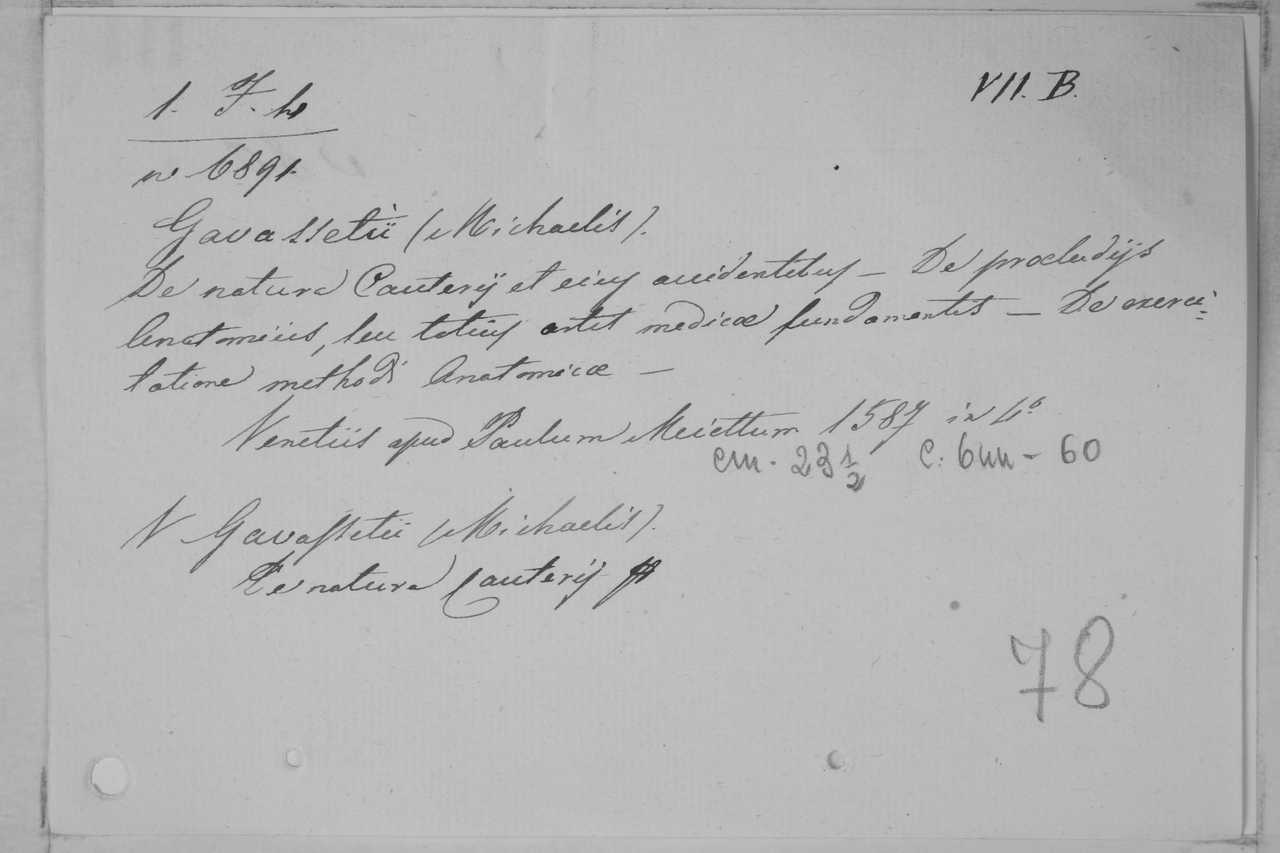 1. F. 4
VII. B.
n 6891.
Gavassetii (Michaelis).
De natura Cauterij et eius accidentibus — De præludijs
Anatomicis, seu totius artis medicæ fundamentis — De exerci-
tatione methodi Anatomicæ —
Venetiis apud Paulum Meiettum 1587 in 4º
cm. 23 1/2 c. 6nn - 60
V Gavassetii (Michaelis).
De natura Cauterij
78